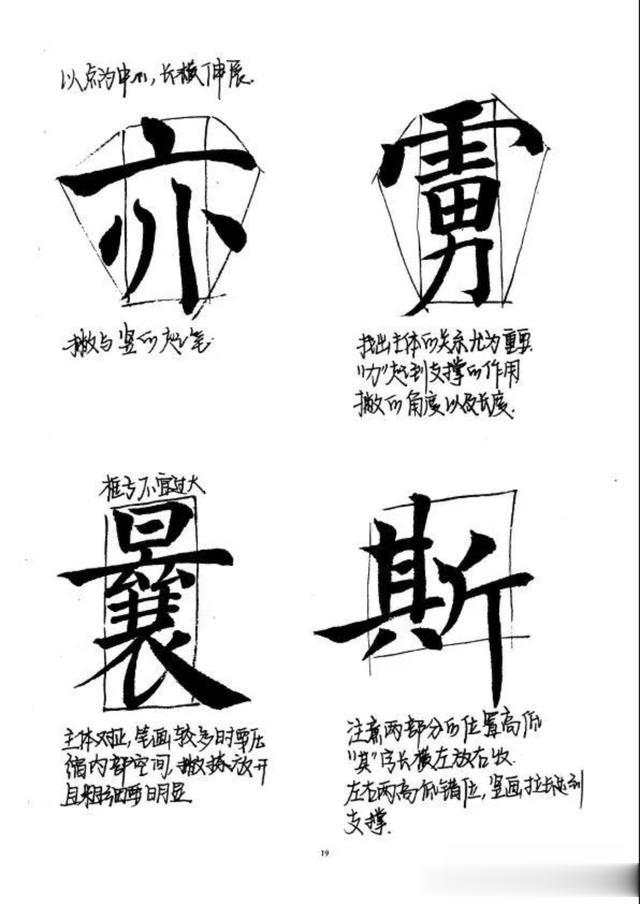 以点为中心,长横伸展.
亦
撇与竖的起笔
找出主体的关系尤为重要.
“力”起到支撑的作用
撇的角度以及长度.
框 不宜过大
曩
主体对正,笔画较多时要压
缩内部空间,撇捺放开
且粗细要明显
斯
注意两部分的位置高低
“其”字长横左放右收.
左右两高低错位,竖画拉长起到
支撑.
19